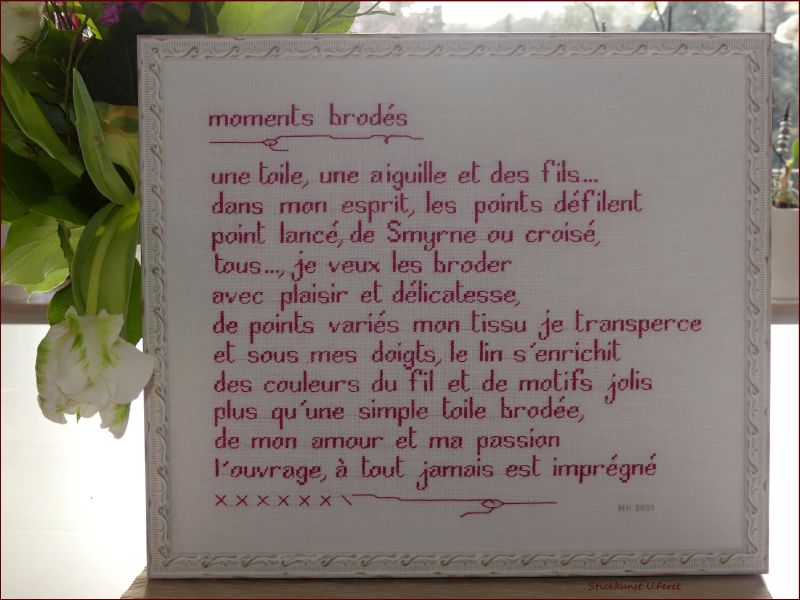 moments brodés
une toile, une aiguille et des fils...
dans mon esprit, les points défilent
point lancé, de Smyrne ou croisé,
tous..., je veux les broder
avec plaisir et délicatesse,
de points variés mon tissu je transperce
et sous mes doigts, le lin s'enrichit
des couleurs du fil et de motifs jolis
plus qu'une simple toile brodée,
de mon amour et ma passion
l'ouvrage, à tout jamais est imprégné
HK 2021
Stickkunst U.Feret